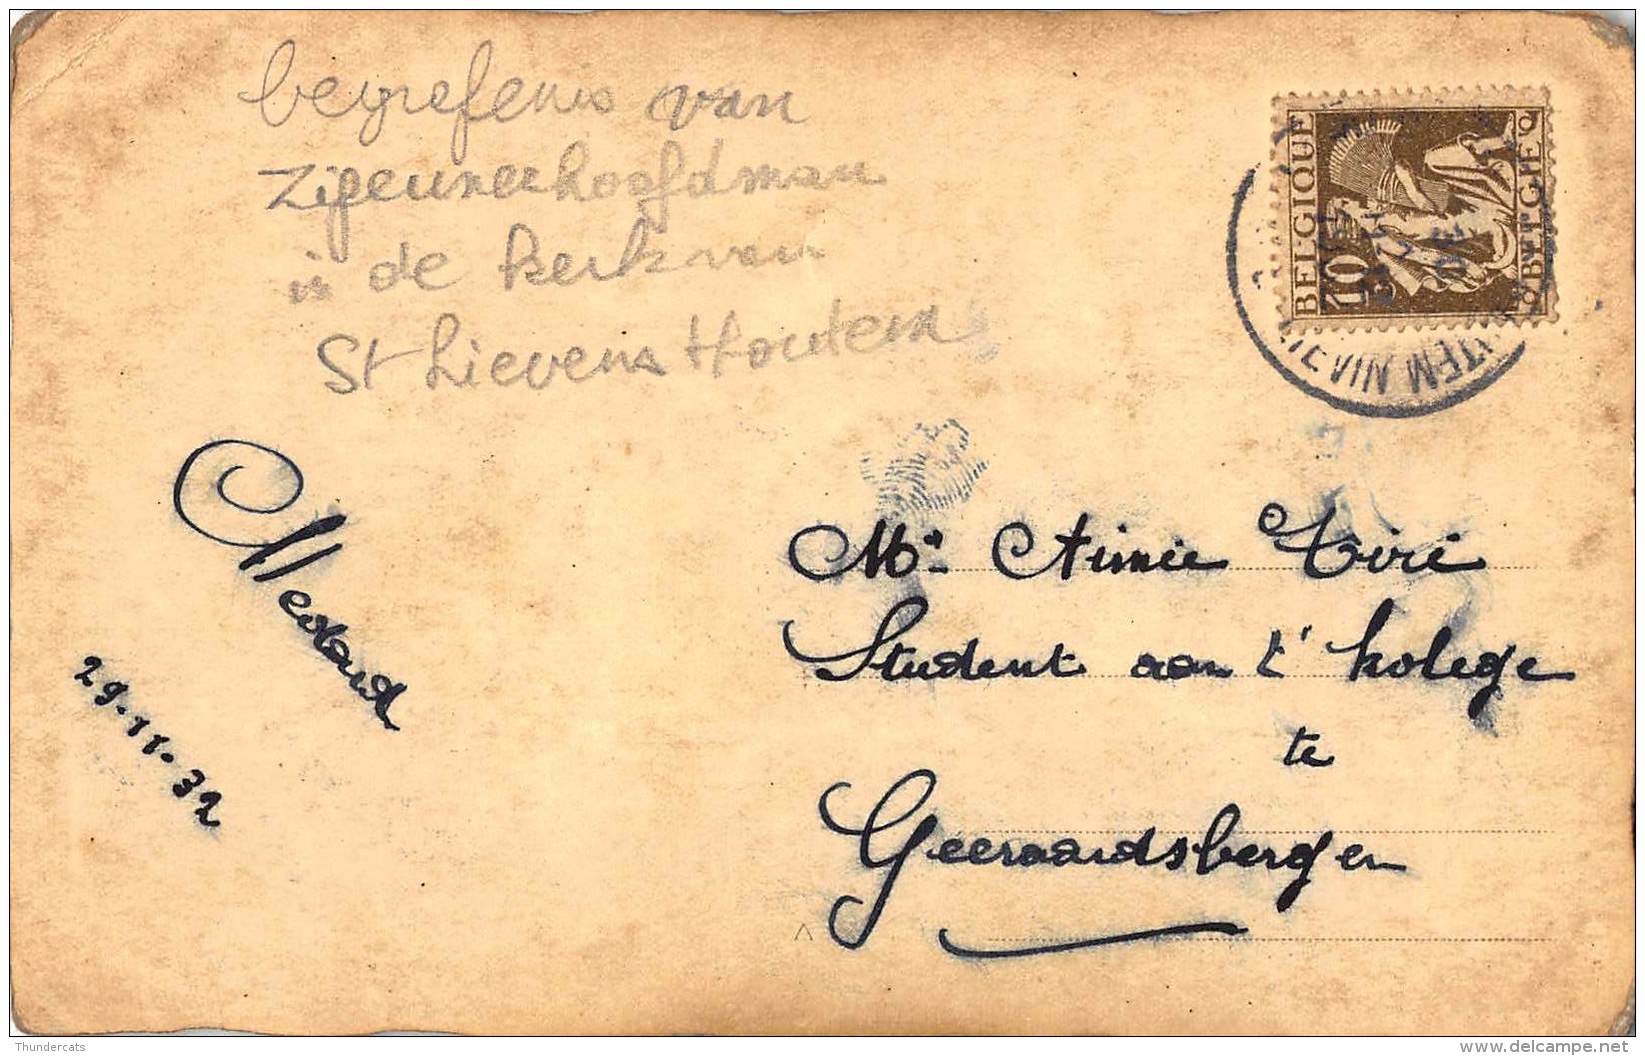 begrefenis van
Zigeunerhoofdman
in de kerk van
St Lievens Houtem
BELGIQUE
10
BELGIË
Medard
29.11.32
Mr. Aimée Tiré
Student aan t' kolege
te
Geeraardsbergen
Thundercats
delcampe.net